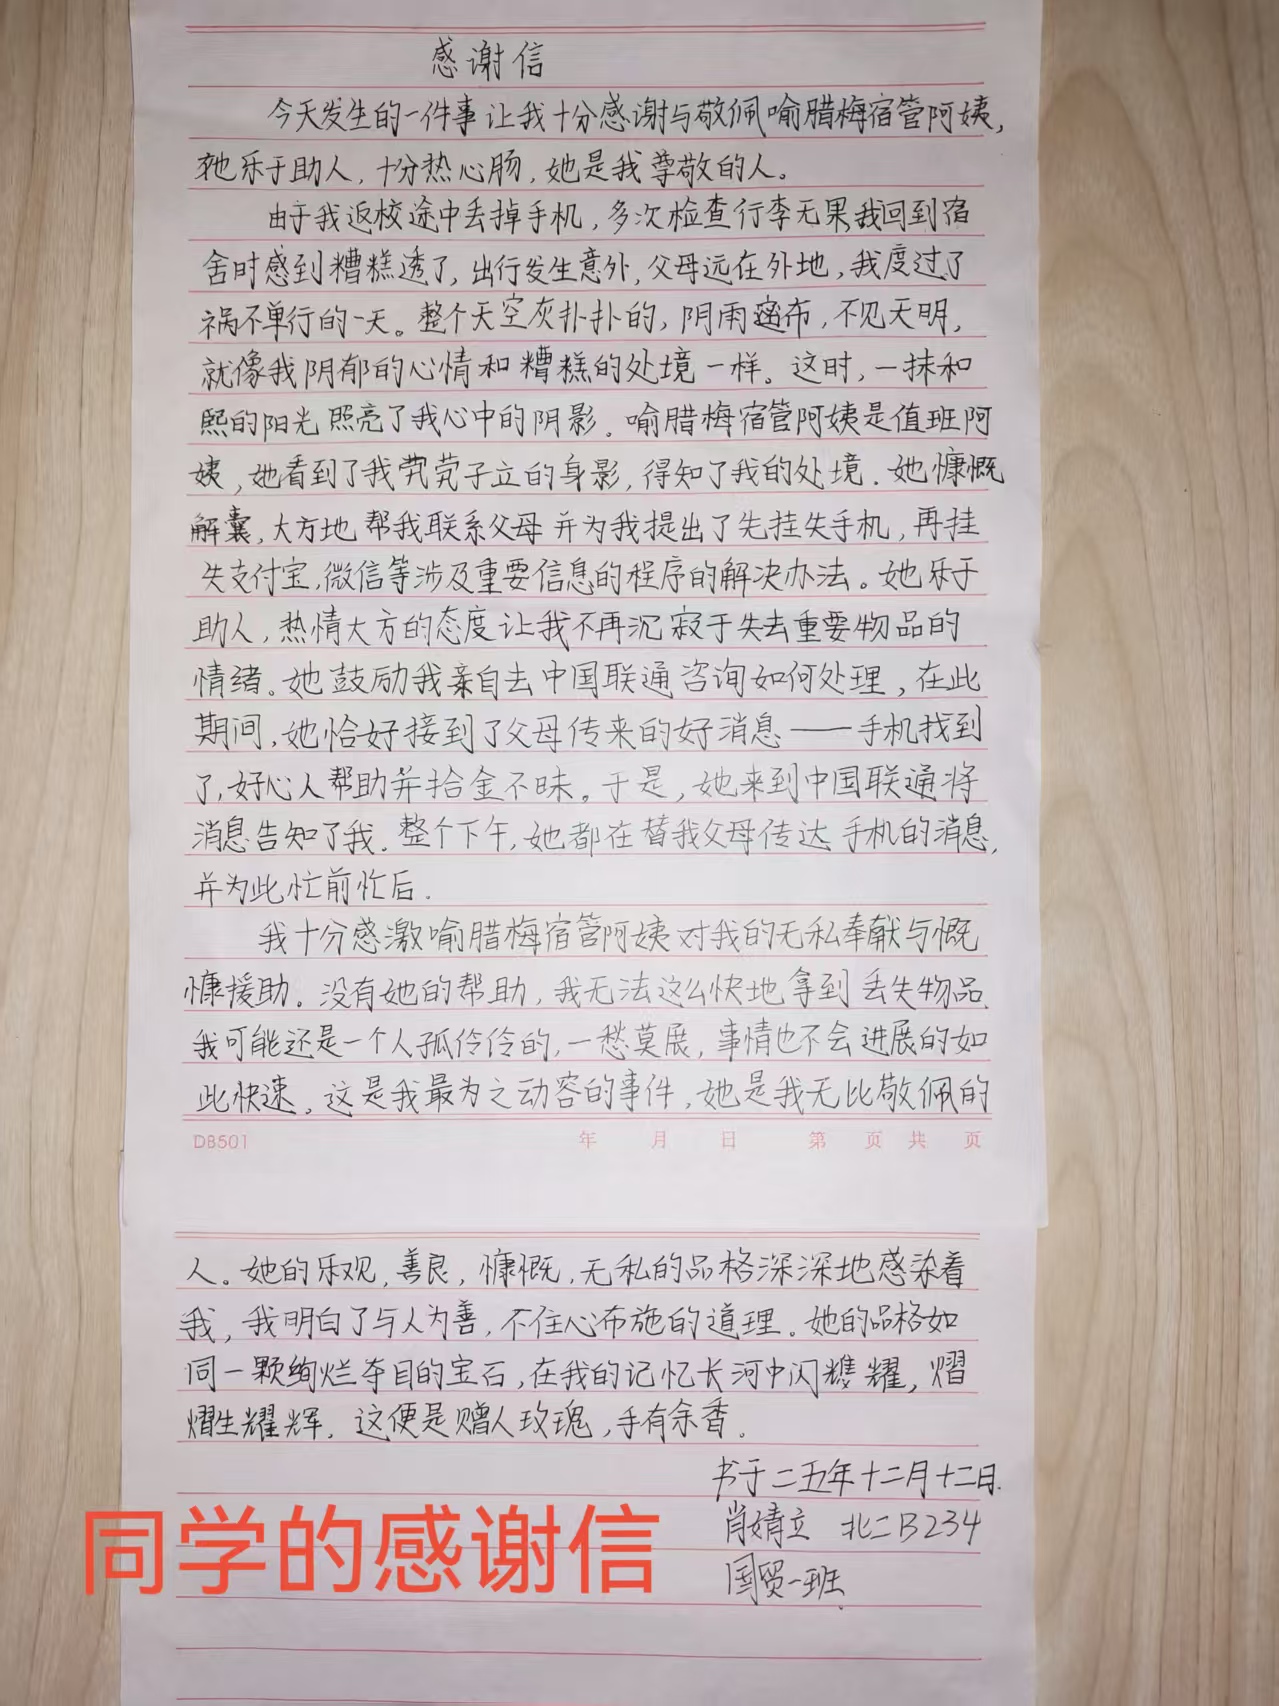 感谢信
今天发生的一件事让我十分感谢与敬佩喻腊梅宿管阿姨，
她乐于助人，十分热心肠，她是我尊敬的人。
由于我返校途中丢掉手机，多次检查行李无果，我回到宿
舍时感到糟糕透了，出行发生意外，父母远在外地，我度过了
祸不单行的一天。整个天空灰扑扑的，阴雨密布，不见天明，
就像我阴郁的心情和糟糕的处境一样。这时，一抹和
熙的阳光照亮了我心中的阴影。喻腊梅宿管阿姨是值班阿
姨，她看到了我茕茕孑立的身影，得知了我的处境．她慷慨
解囊，大方地帮我联系父母并为我提出了先挂失手机，再挂
失支付宝，微信等涉及重要信息的程序的解决办法。她乐于
助人，热情大方的态度让我不再沉寂于失去重要物品的
情绪。她鼓励我亲自去中国联通咨询如何处理，在此
期间，她恰好接到了父母传来的好消息——手机找到
了，好心人帮助并拾金不昧。于是，她来到中国联通将
消息告知了我．整个下午，她都在替我父母传达手机的消息，
并为此忙前忙后．
我十分感激喻腊梅宿管阿姨对我的无私奉献与慨
慷援助．没有她的帮助，我无法这么快地拿到丢失物品．
我可能还是一个人孤伶伶的，一愁莫展，事情也不会进展的如
此快速。这是我最为之动容的事件，她是我无比敬佩的
DB501 年 月 日 第 页 共 页
人。她的乐观，善良，慷慨，无私的品格深深地感染着
我，我明白了与人为善，不住心布施的道理。她的品格如
同一颗绚烂夺目的宝石，在我的记忆长河中闪耀，熠
熠生耀辉．这便是赠人玫瑰，手有余香。
书于二五年十二月十二日．
肖婧立 北二B234
国贸一班．
同学的感谢信